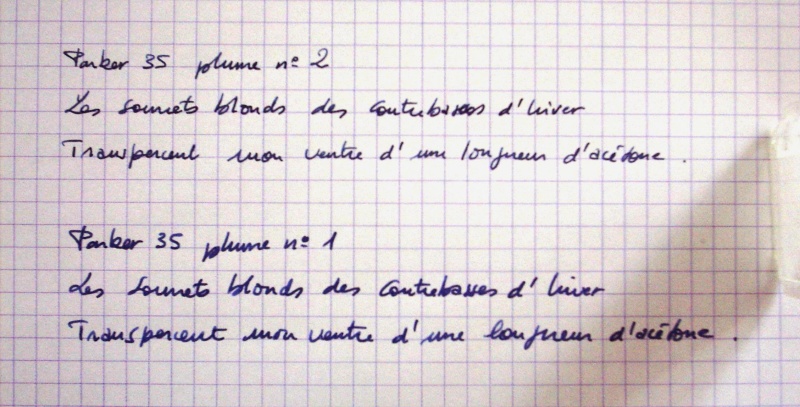 Parker 35 plume nº 2
Les sonnets blonds des contrebasses d'hiver
Transpercent mon ventre d'une longueur d'acétone.
Parker 35 plume nº 1
Les sonnets blonds des contrebasses d'hiver
Transpercent mon ventre d'une longueur d'acétone.